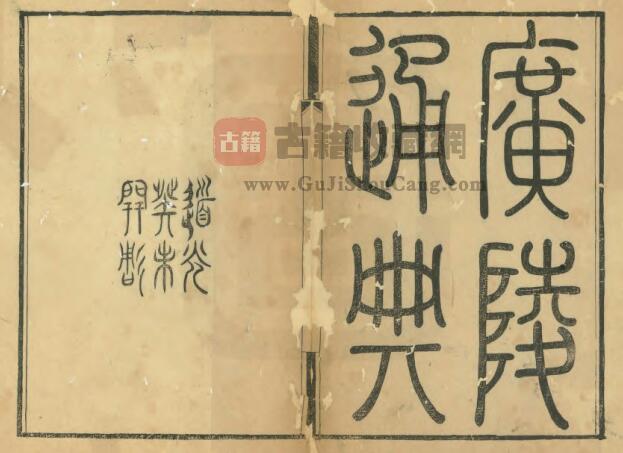 廣陵
通典
道光
癸未
開彫
古籍
古籍收藏网
www.GuJiShouCang.com